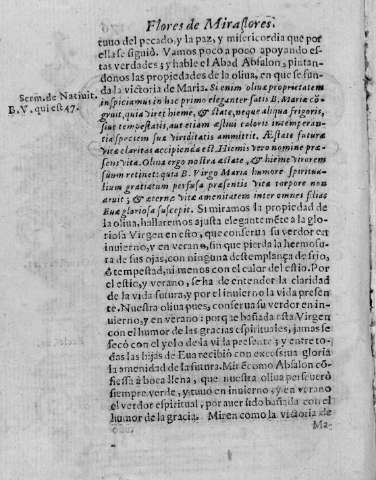 Flores de Miraflores.
tuuo del pecado, y la paz, y misericordia que por
ella se siguiò. Vamos poco a poco apoyando es-
tas verdades; y hable el Abad Absalon, pintan-
donos las propiedades de la oliua, en que se fun-
da la victoria de Maria. Si enim oliuæ proprietatem
Serm. de Natiuit.
B. V. qui est 47.
inspiciamus in hic primo eleganter satis B. Mariæ cõ-
gruit, quia viret hieme, & state, neque aliqua frigoris,
siue tempestatis, aut etiam æstiui caloris intemperan-
tia speciem suæ viriditatis ammittit. Æstate futuræ
vitæ claritas accipienda est. Hiemis vero nomine præ-
sens vita. Oliua ergo nostra æstate, & hieme virorem
suum retinet: quia B. Virgo Maria humore spiritua-
lium gratiatum perfusa præsentis vitæ torpore non
aruit; & æternæ vitæ amenitatem inter omnes filias
Euæ gloriosa suscepit. Si miramos la propiedad de
la oliua, hallaremos ajusta elegantemẽte à la glo-
riosa Virgen en esto, que conserua su verdor en
inuierno, y en verano, sin que pierda la hermosu-
ra de sus ojas, con ninguna destemplança de frio,
ò tempestad, ni menos con el calor del estio. Por
el estio, y verano, se ha de entender la claridad
de la vida futura, y por el inuierno la vida presen
te. Nuestra oliua pues, conserua su verdor en in-
uierno, y en verano: porq̃ bañada esta Virgen
con el humor de las gracias espirituales, jamas se
secò con el yelo de la vida presente; y entre to-
das las hijas de Eua recibiò con excessiua gloria
la amenidad de la futura. Mirẽ como Absalon cõ-
fiessa à boca llena, que nuestra oliua perseuerò
siempre verde, y tuuo en inuierno; y en verano
el verdor espiritual, por auer sido bañada con el
humor de la gracia. Miren como la victoria de
Ma-